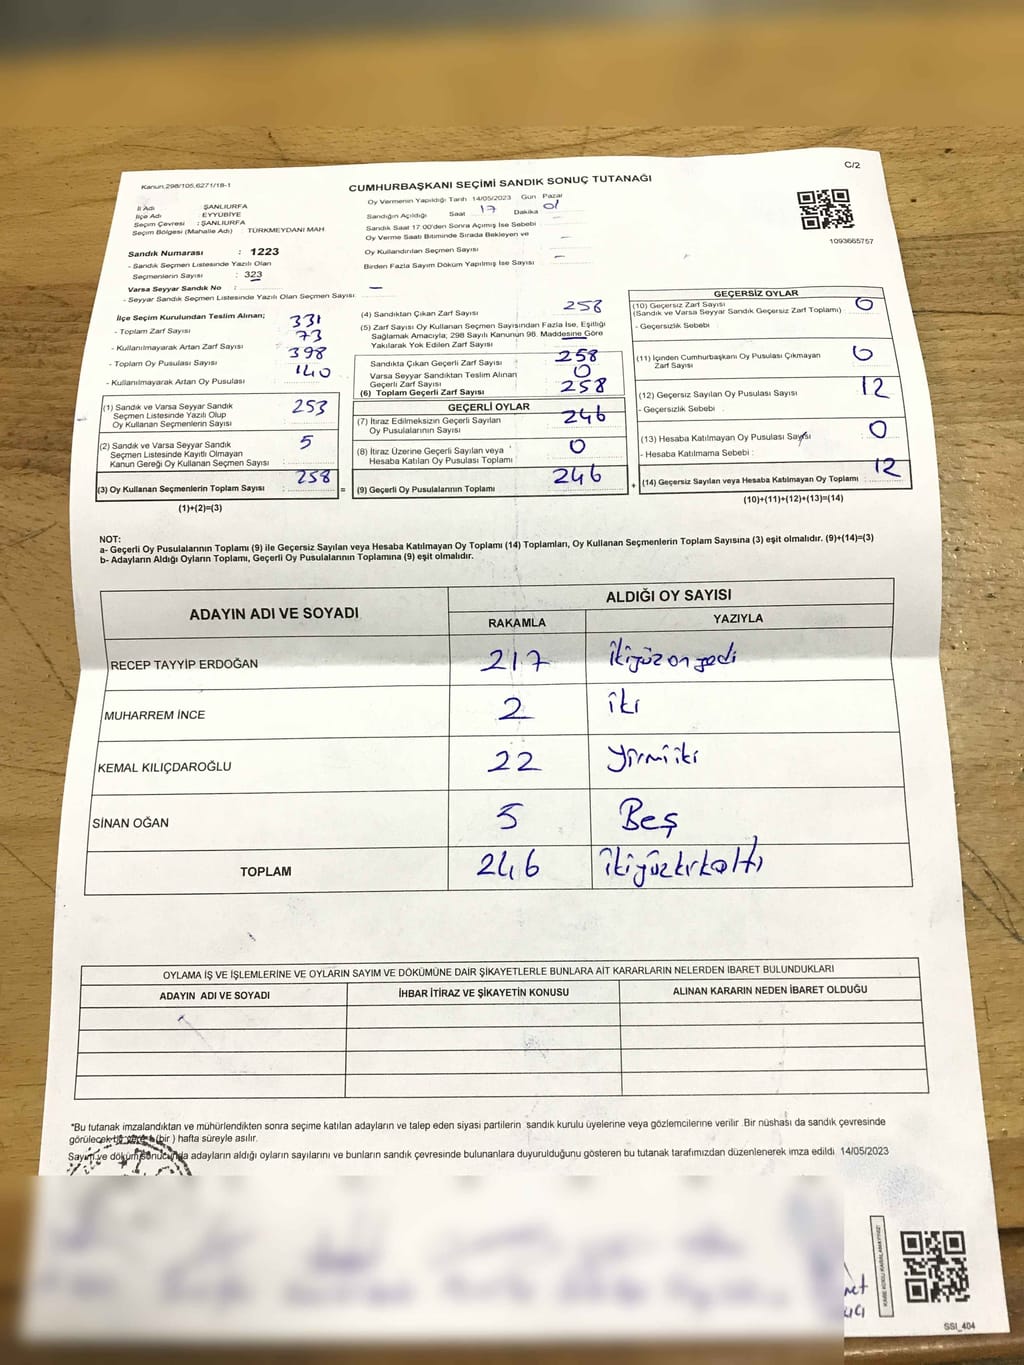 C/2
Kanun,298/105,6271/18-1
CUMHURBAŞKANI SEÇİMİ SANDIK SONUÇ TUTANAĞI
İl Adı : ŞANLIURFA
İlçe Adı : EYYUBİYE
Seçim Çevresi : ŞANLIURFA
Seçim Bölgesi (Mahalle Adı) : TÜRKMEYDANI MAH.
Sandık Numarası : 1223
- Sandık Seçmen Listesinde Yazılı Olan
Seçmenlerin Sayısı : 323
Varsa Seyyar Sandık No : —
- Seyyar Sandık Seçmen Listesinde Yazılı Olan Seçmen Sayısı
Oy Vermenin Yapıldığı Tarih 14/05/2023 Gün Pazar
Sandığın Açıldığı Saat 17 Dakika 01
Sandık Saat 17:00'den Sonra Açımış İse Sebebi —
Oy Verme Saati Bitiminde Sırada Bekleyen ve
Oy Kullandırılan Seçmen Sayısı —
Birden Fazla Sayım Döküm Yapılmış İse Sayısı —
1093665757
İlçe Seçim Kurulundan Teslim Alınan;
- Toplam Zarf Sayısı 331
- Kullanılmayarak Artan Zarf Sayısı 73
- Toplam Oy Pusulası Sayısı 398
- Kullanılmayarak Artan Oy Pusulası 140
(1) Sandık ve Varsa Seyyar Sandık
Seçmen Listesinde Yazılı Olup
Oy Kullanan Seçmenlerin Sayısı 253
(2) Sandık ve Varsa Seyyar Sandık
Seçmen Listesinde Kayıtlı Olmayan
Kanun Gereği Oy Kullanan Seçmen Sayısı 5
(3) Oy Kullanan Seçmenlerin Toplam Sayısı : 258 =
(1)+(2)=(3)
(4) Sandıktan Çıkan Zarf Sayısı 258
(5) Zarf Sayısı Oy Kullanan Seçmen Sayısından Fazla İse, Eşitliği
Sağlamak Amacıyla; 298 Sayılı Kanunun 98. Maddesine Göre
Yakılarak Yok Edilen Zarf Sayısı —
Sandıkta Çıkan Geçerli Zarf Sayısı 258
Varsa Seyyar Sandıktan Teslim Alınan
Geçerli Zarf Sayısı 0
(6) Toplam Geçerli Zarf Sayısı 258
GEÇERLİ OYLAR
(7) İtiraz Edilmeksizin Geçerli Sayılan
Oy Pusulalarının Sayısı 246
(8) İtiraz Üzerine Geçerli Sayılan veya
Hesaba Katılan Oy Pusulası Toplamı 0
(9) Geçerli Oy Pusulalarının Toplamı 246 +
GEÇERSİZ OYLAR
(10) Geçersiz Zarf Sayısı
(Sandık ve Varsa Seyyar Sandık Geçersiz Zarf Toplamı) 0
- Geçersizlik Sebebi :
(11) İçinden Cumhurbaşkanı Oy Pusulası Çıkmayan
Zarf Sayısı 0
(12) Geçersiz Sayılan Oy Pusulası Sayısı 12
- Geçersizlik Sebebi :
(13) Hesaba Katılmayan Oy Pusulası Sayısı 0
- Hesaba Katılmama Sebebi :
(14) Geçersiz Sayılan veya Hesaba Katılmayan Oy Toplamı : 12
(10)+(11)+(12)+(13)=(14)
NOT:
a- Geçerli Oy Pusulalarının Toplamı (9) ile Geçersiz Sayılan veya Hesaba Katılmayan Oy Toplamı (14) Toplamları, Oy Kullanan Seçmenlerin Toplam Sayısına (3) eşit olmalıdır. (9)+(14)=(3)
b- Adayların Aldığı Oyların Toplamı, Geçerli Oy Pusulalarının Toplamına (9) eşit olmalıdır.
ADAYIN ADI VE SOYADI ALDIĞI OY SAYISI
RAKAMLA YAZIYLA
RECEP TAYYİP ERDOĞAN 217 ikiyüzonyedi
MUHARREM İNCE 2 iki
KEMAL KILIÇDAROĞLU 22 yirmiiki
SİNAN OĞAN 5 Beş
TOPLAM 246 ikiyüzkırkaltı
OYLAMA İŞ VE İŞLEMLERİNE VE OYLARIN SAYIM VE DÖKÜMÜNE DAİR ŞİKAYETLERLE BUNLARA AİT KARARLARIN NELERDEN İBARET BULUNDUKLARI
ADAYIN ADI VE SOYADI İHBAR İTİRAZ VE ŞİKAYETİN KONUSU ALINAN KARARIN NEDEN İBARET OLDUĞU
*Bu tutanak imzalandıktan ve mühürlendikten sonra seçime katılan adayların ve talep eden siyasi partilerin sandık kurulu üyelerine veya gözlemcilerine verilir. Bir nüshası da sandık çevresinde
görülecek bir yere 1 (bir) hafta süreyle asılır.
Sayım ve döküm sonucunda adayların aldığı oyların sayılarını ve bunların sandık çevresinde bulunanlara duyurulduğunu gösteren bu tutanak tarafımızdan düzenlenerek imza edildi. 14/05/2023
KARE KODU KARALAMAYINIZ!
SSI_404